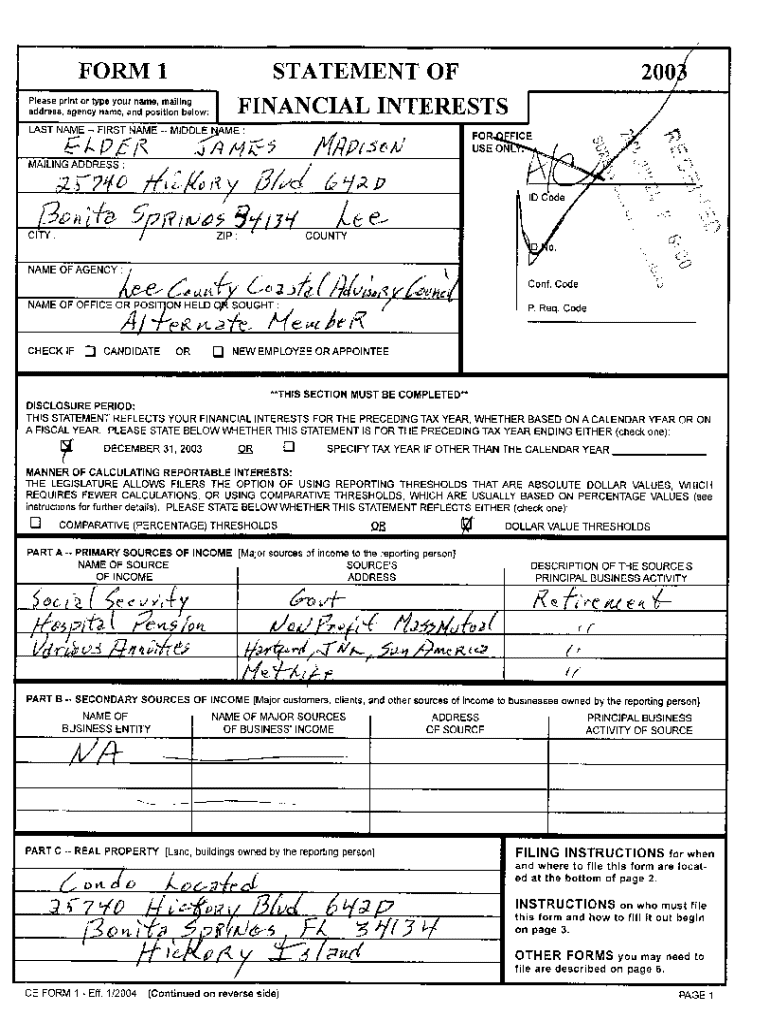 FORM 1 STATEMENT OF 2003
Please print or type your name, mailing
address, agency name, and position below:
FINANCIAL INTERESTS
LAST NAME -- FIRST NAME -- MIDDLE NAME :
ELDER JAMES MADISON
FOR OFFICE
USE ONLY:
MAILING ADDRESS :
25740 Hickory Blvd 642D
ID Code
Bonita SPRINGS 34134 Lee
CITY : ZIP : COUNTY
ID No.
NAME OF AGENCY :
Lee County Coastal Advisory Council
Conf. Code
NAME OF OFFICE OR POSITION HELD OR SOUGHT :
Alternate Member
P. Req. Code
CHECK IF CANDIDATE OR NEW EMPLOYEE OR APPOINTEE
RECEIVED
**THIS SECTION MUST BE COMPLETED**
DISCLOSURE PERIOD:
THIS STATEMENT REFLECTS YOUR FINANCIAL INTERESTS FOR THE PRECEDING TAX YEAR, WHETHER BASED ON A CALENDAR YEAR OR ON
A FISCAL YEAR. PLEASE STATE BELOW WHETHER THIS STATEMENT IS FOR THE PRECEDING TAX YEAR ENDING EITHER (check one):
DECEMBER 31, 2003 OR SPECIFY TAX YEAR IF OTHER THAN THE CALENDAR YEAR
MANNER OF CALCULATING REPORTABLE INTERESTS:
THE LEGISLATURE ALLOWS FILERS THE OPTION OF USING REPORTING THRESHOLDS THAT ARE ABSOLUTE DOLLAR VALUES, WHICH
REQUIRES FEWER CALCULATIONS, OR USING COMPARATIVE THRESHOLDS, WHICH ARE USUALLY BASED ON PERCENTAGE VALUES (see
instructions for further details). PLEASE STATE BELOW WHETHER THIS STATEMENT REFLECTS EITHER (check one):
COMPARATIVE (PERCENTAGE) THRESHOLDS OR DOLLAR VALUE THRESHOLDS
PART A -- PRIMARY SOURCES OF INCOME [Major sources of income to the reporting person]
NAME OF SOURCE SOURCE'S DESCRIPTION OF THE SOURCE'S
OF INCOME ADDRESS PRINCIPAL BUSINESS ACTIVITY
Social Security Govt Retirement
Hospital Pension Non Profit MassMutual "
Various Annuities Hartford, INA, Sun America "
MetLife "
PART B -- SECONDARY SOURCES OF INCOME [Major customers, clients, and other sources of income to businesses owned by the reporting person]
NAME OF NAME OF MAJOR SOURCES ADDRESS PRINCIPAL BUSINESS
BUSINESS ENTITY OF BUSINESS' INCOME OF SOURCE ACTIVITY OF SOURCE
NA
PART C -- REAL PROPERTY [Land, buildings owned by the reporting person]
Condo Located
25740 Hickory Blvd 642D
Bonita SPRINGS, FL 34134
Hickory Island
FILING INSTRUCTIONS for when
and where to file this form are locat-
ed at the bottom of page 2.
INSTRUCTIONS on who must file
this form and how to fill it out begin
on page 3.
OTHER FORMS you may need to
file are described on page 6.
CE FORM 1 - Eff. 1/2004 (Continued on reverse side) PAGE 1